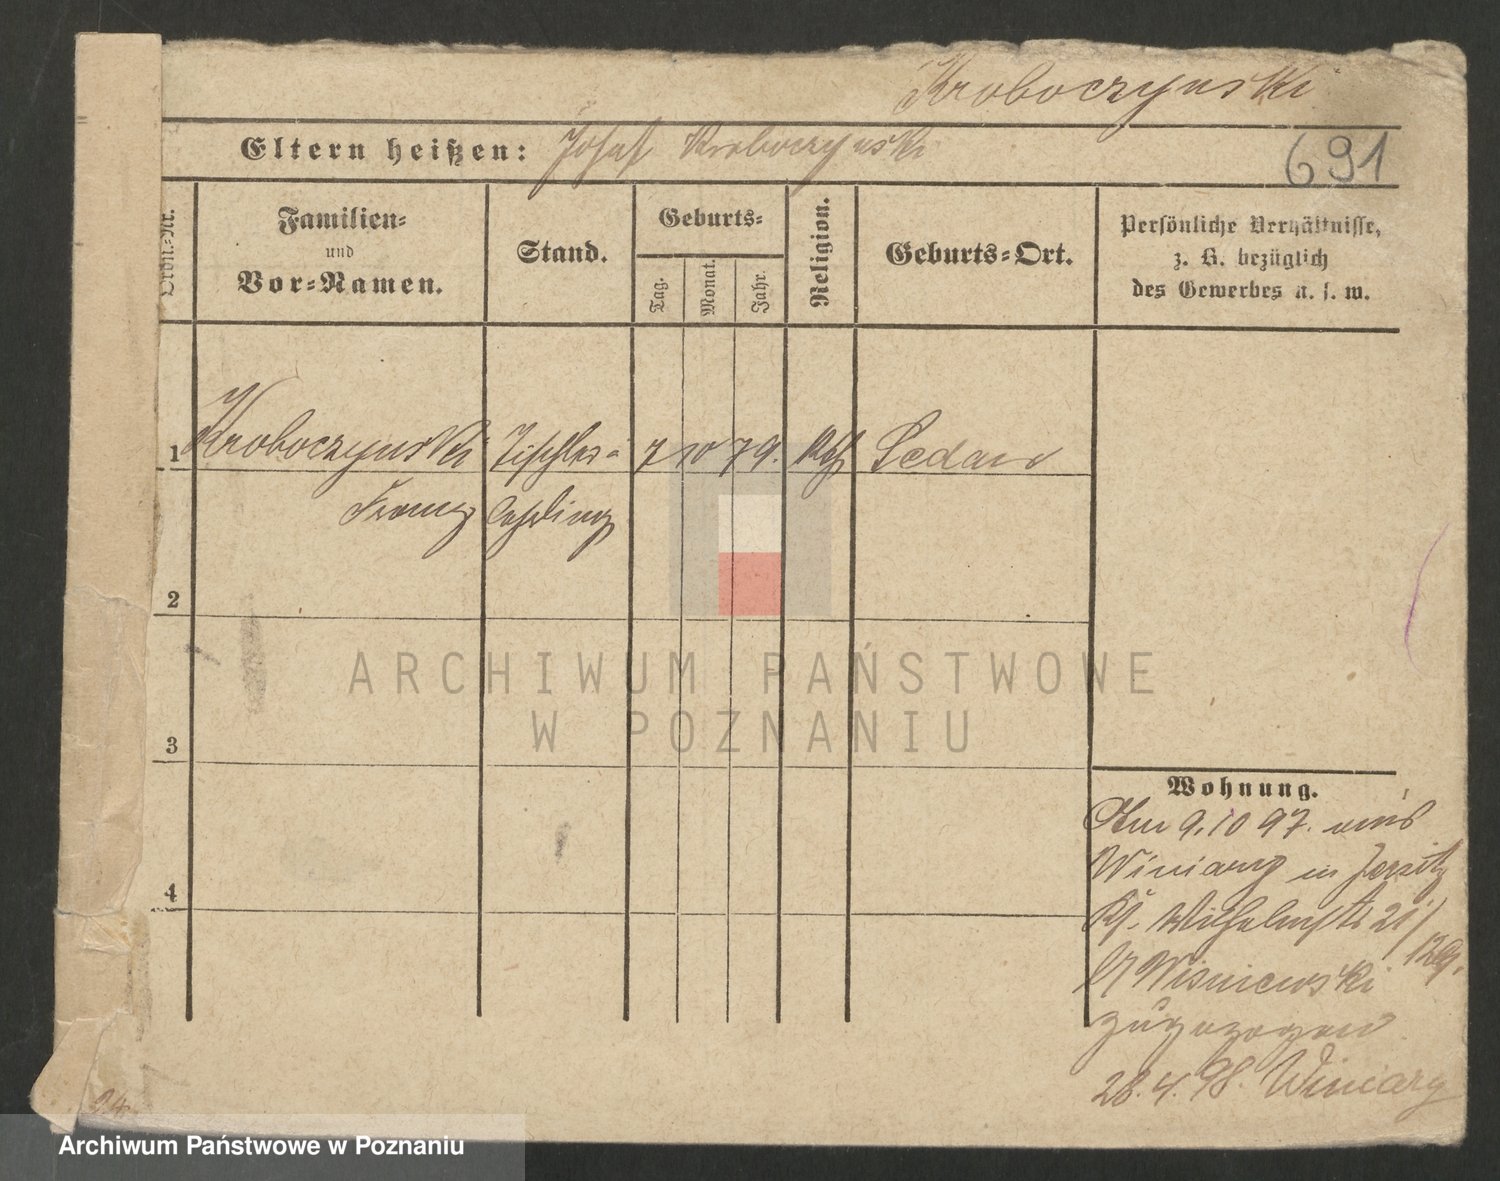 Kroboczynski
Eltern heißen: Josef Kroboczynski
691
Ordn.-Nr.
Familien- und Vor-Namen.
Stand.
Geburts-
Tag.
Monat.
Jahr.
Religion.
Geburts-Ort.
Persönliche Verhältnisse,
z. B. bezüglich
des Gewerbes u. s. w.
1 Kroboczynski Tischler- 7 10 79. Kth Sedan
Franz lehrling
2
3
4
Wohnung.
Am 9.10 97. aus
Winiary in Jersitz
Wilhelmstr 21/
129.
Wisniewski
zugezogen
28.4.98. Winiary
ARCHIWUM PAŃSTWOWE
W POZNANIU
Archiwum Państwowe w Poznaniu